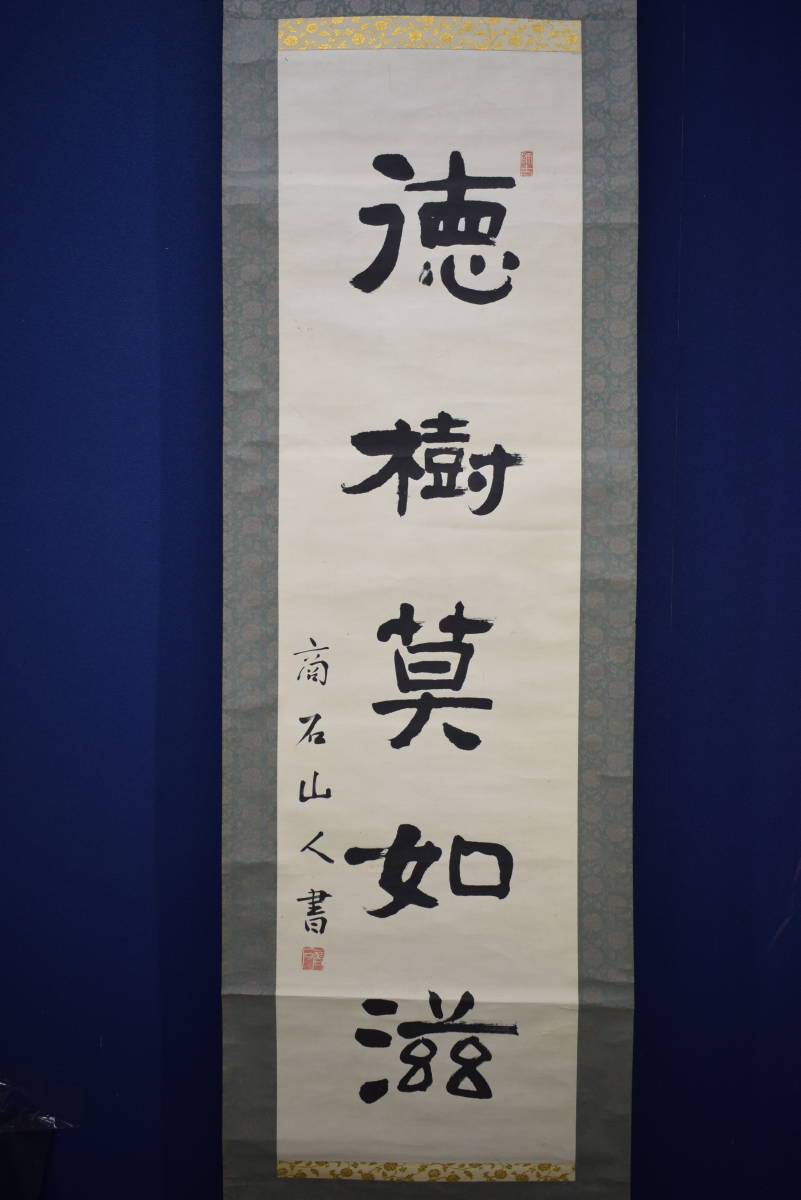 徳樹莫如滋
商石山人書